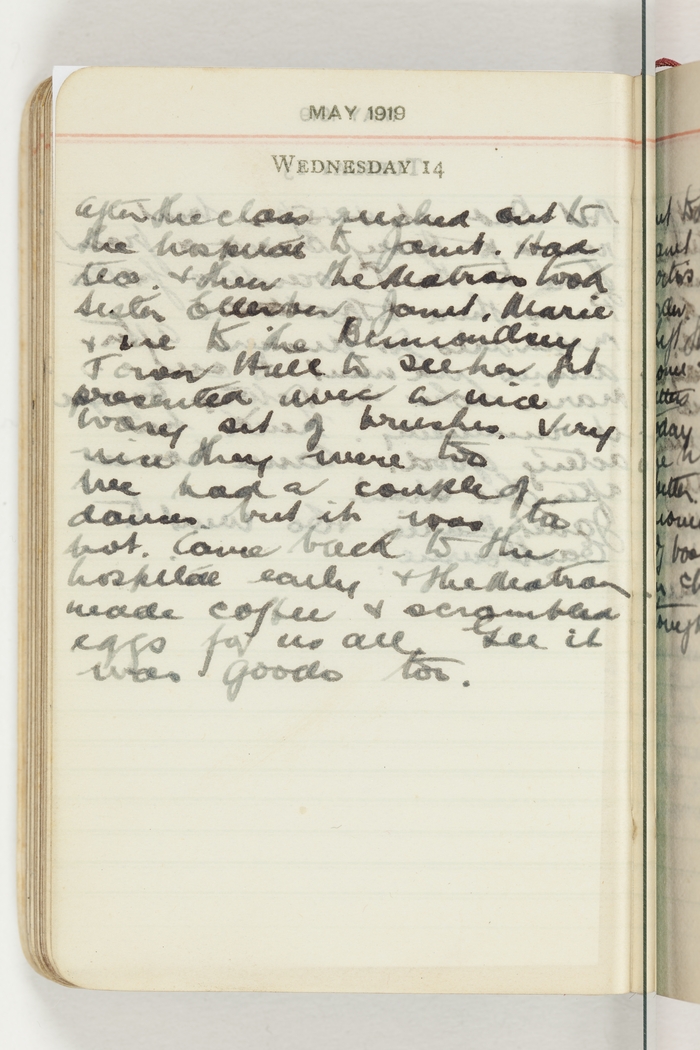 MAY 1919
WEDNESDAY 14
After the class rushed out to
the hospital to Janet. Had
tea. & then the Matron took
Sister Janet, Marie
& me to the Bermondsey
Town Hall to see her get
presented with a nice
ivory set of brushes. Very
nice they were too
We had a couple of
dances but it was too
hot. Came back to the
hospital early & the Matron
made coffee & scrambled
eggs for us all. Gee it
was good too.